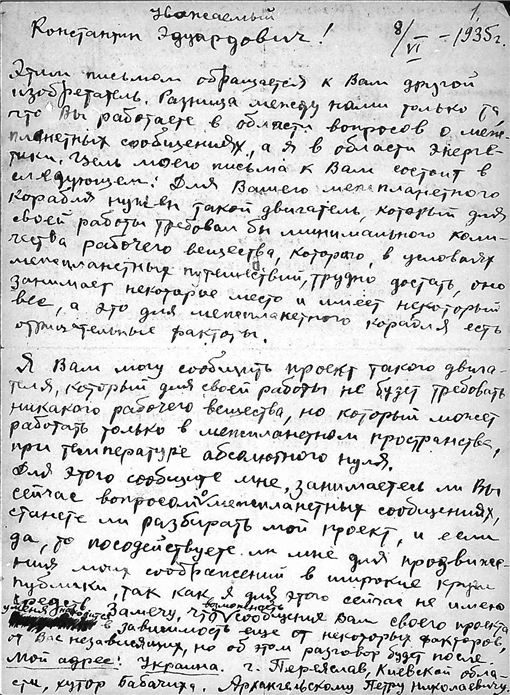 1.
Уважаемый
Константин Эдуардович!
8/VI – 1935 г.
Этим письмом обращается к Вам другой
изобретатель. Разница между нами только та
что Вы работаете в области вопросов о меж-
планетных сообщениях, а я в области энерге-
тики. Цель моего письма к Вам состоит в
следующем: Для Вашего межпланетного
корабля нужен такой двигатель, который для
своей работы требовал бы минимального коли-
чества рабочего вещества, которого, в условиях
межпланетных путешествий, трудно достать, оно
занимает некоторое место и имеет некоторый
вес, а это для межпланетного корабля есть
отрицательные факторы.
Я Вам могу сообщить проект такого двига-
теля, который для своей работы не будет требовать
никакого рабочего вещества, но который может
работать только в межпланетном пространстве,
при температуре абсолютного нуля.
Для этого сообщите мне, занимаетесь ли Вы
сейчас вопросом о межпланетных сообщениях,
станете ли разбирать мой проект, и если
да, то посодействуете ли мне для продвиже-
ния моих соображений в широкие круги
публики, так как я для этого сейчас не имею
средств. Замечу, что возможность сообщения Вам своего проекта
у меня находится в зависимость еще от некоторых факторов,
от Вас независящих, но об этом разговор будет после.
Мой адрес: Украина. г. Переяслав, Киевской обла-
сти, хутор Бабачиха. Архангельскому Петру Николаевичу.